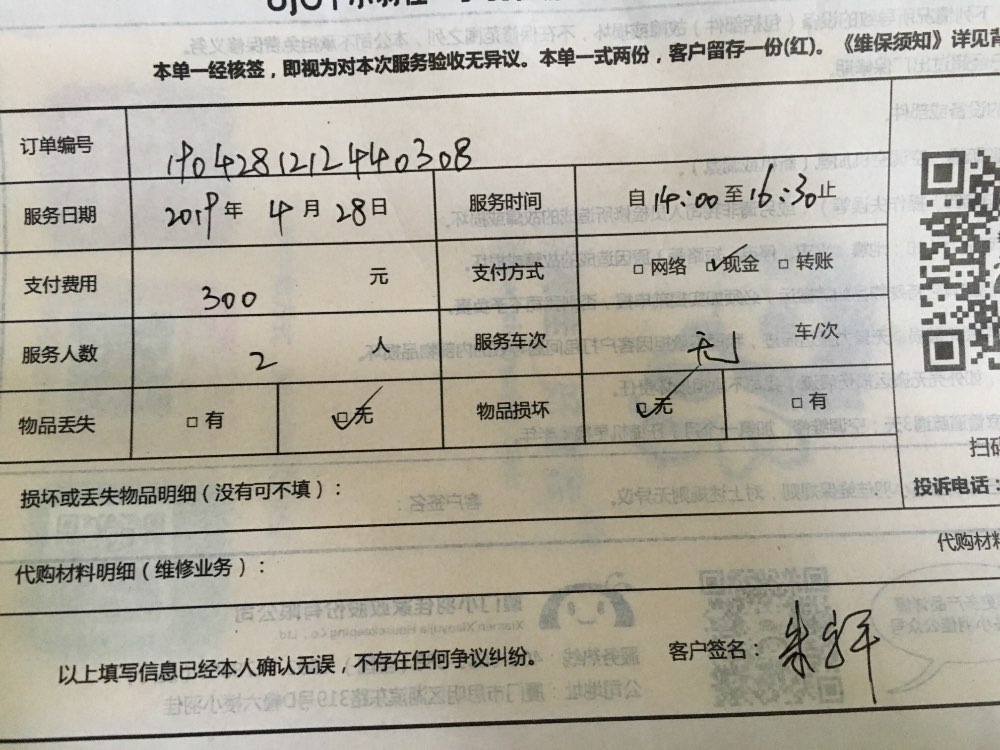 本单一经核签，即视为对本次服务验收无异议。本单一式两份，客户留存一份(红)。《维保须知》详见背
订单编号 1904281212440308
服务日期 2019年 4月 28日 服务时间 自14:00至16:30止
支付费用 300 元 支付方式 □网络 ☑现金 □转账
服务人数 2 人 服务车次 无 车/次
物品丢失 □有 ☑无 物品损坏 ☑无 □有
扫码
损坏或丢失物品明细（没有可不填）：
投诉电话：
代购材料
代购材料明细（维修业务）：
以上填写信息已经本人确认无误，不存在任何争议纠纷。
客户签名：